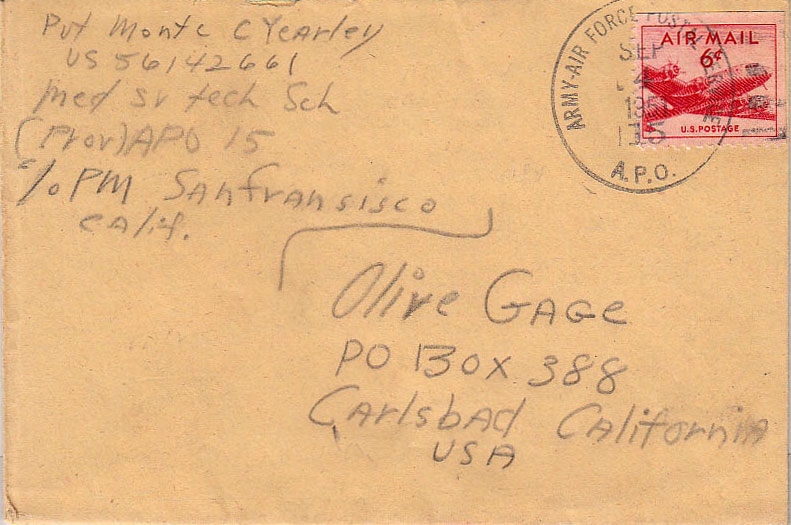 Pvt Monte C Yearley
US 56142661
Med Sv tech Sch
(Prov) APO 15
c/o PM Sanfransisco
Calif.
ARMY-AIR FORCE POSTAL SERVICE
SEP
4
195
15
A.P.O.
AIR MAIL
6¢
U.S. POSTAGE
Olive Gage
PO Box 388
Carlsbad California
USA